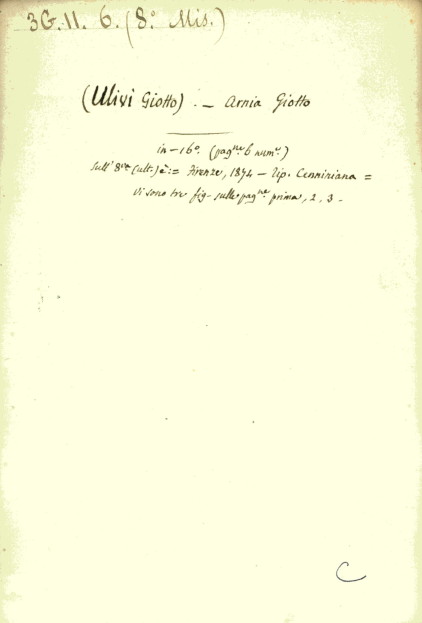 3G. 11. 6. (8.° Mis.)
(Ulivi Giotto). — Arnia Giotto
in-16°. (pag.ne 6 num.e)
Sull' 8va (ult.) è:= Firenze, 1874 — Tip. Cenniniana =
Vi sono tre fig- sulle pag.ne prima, 2, 3 -
C